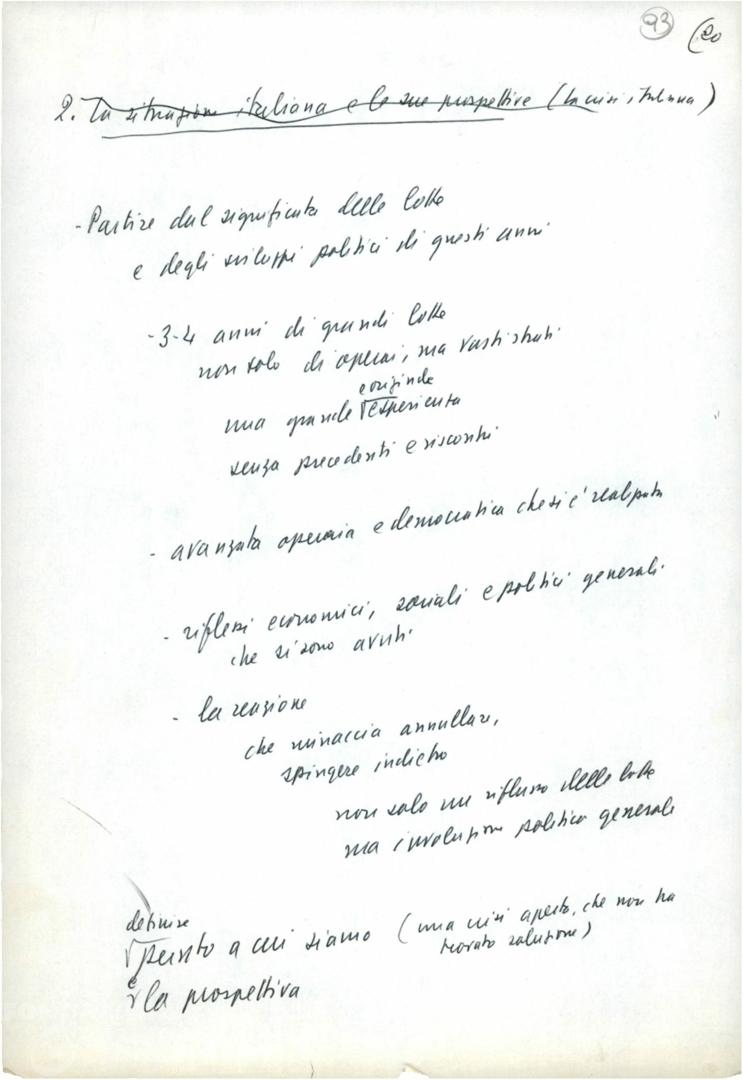 93 (20
2. La situazione italiana e le sue prospettive (la crisi italiana)
- Partire dal significato delle lotte
e degli sviluppi politici di questi anni
- 3-4 anni di grandi lotte
non solo di operai, ma vasti strati
e originale
una grande esperienza
senza precedenti e riscontri
- avanzata operaia e democratica che si è realizzata
- riflessi economici, sociali e politici generali
che si sono avuti
- la reazione
che minaccia annullare,
spingere indietro
non solo un riflusso delle lotte
ma involuzione politica generale
definire
punto a cui siamo (una crisi aperta, che non ha
trovato soluzione)
e la prospettiva